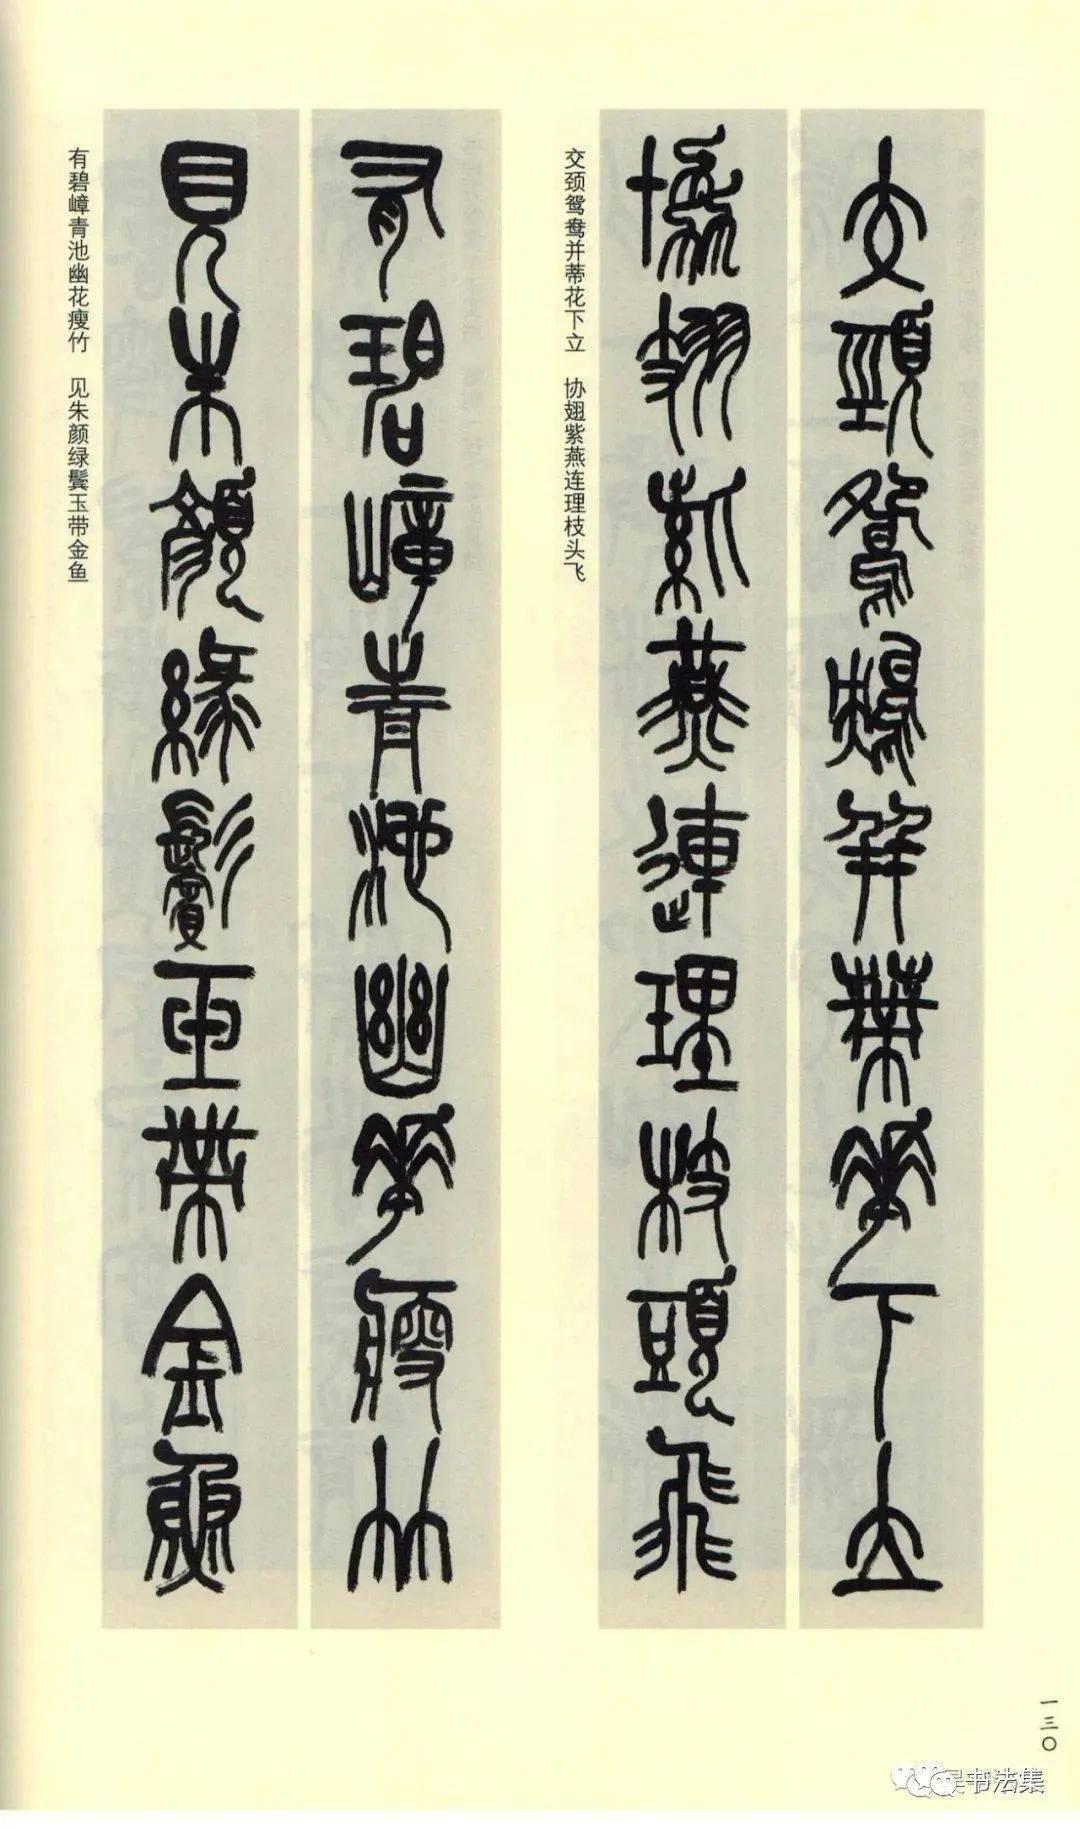 交頸鴛鴦并蒂花下立
協翅紫燕連理枝頭飛
交颈鸳鸯并蒂花下立 协翅紫燕连理枝头飞
有碧嶂青池幽花瘦竹
見朱顏綠鬢玉帶金魚
有碧嶂青池幽花瘦竹 见朱颜绿鬓玉带金鱼
一三〇
书法集